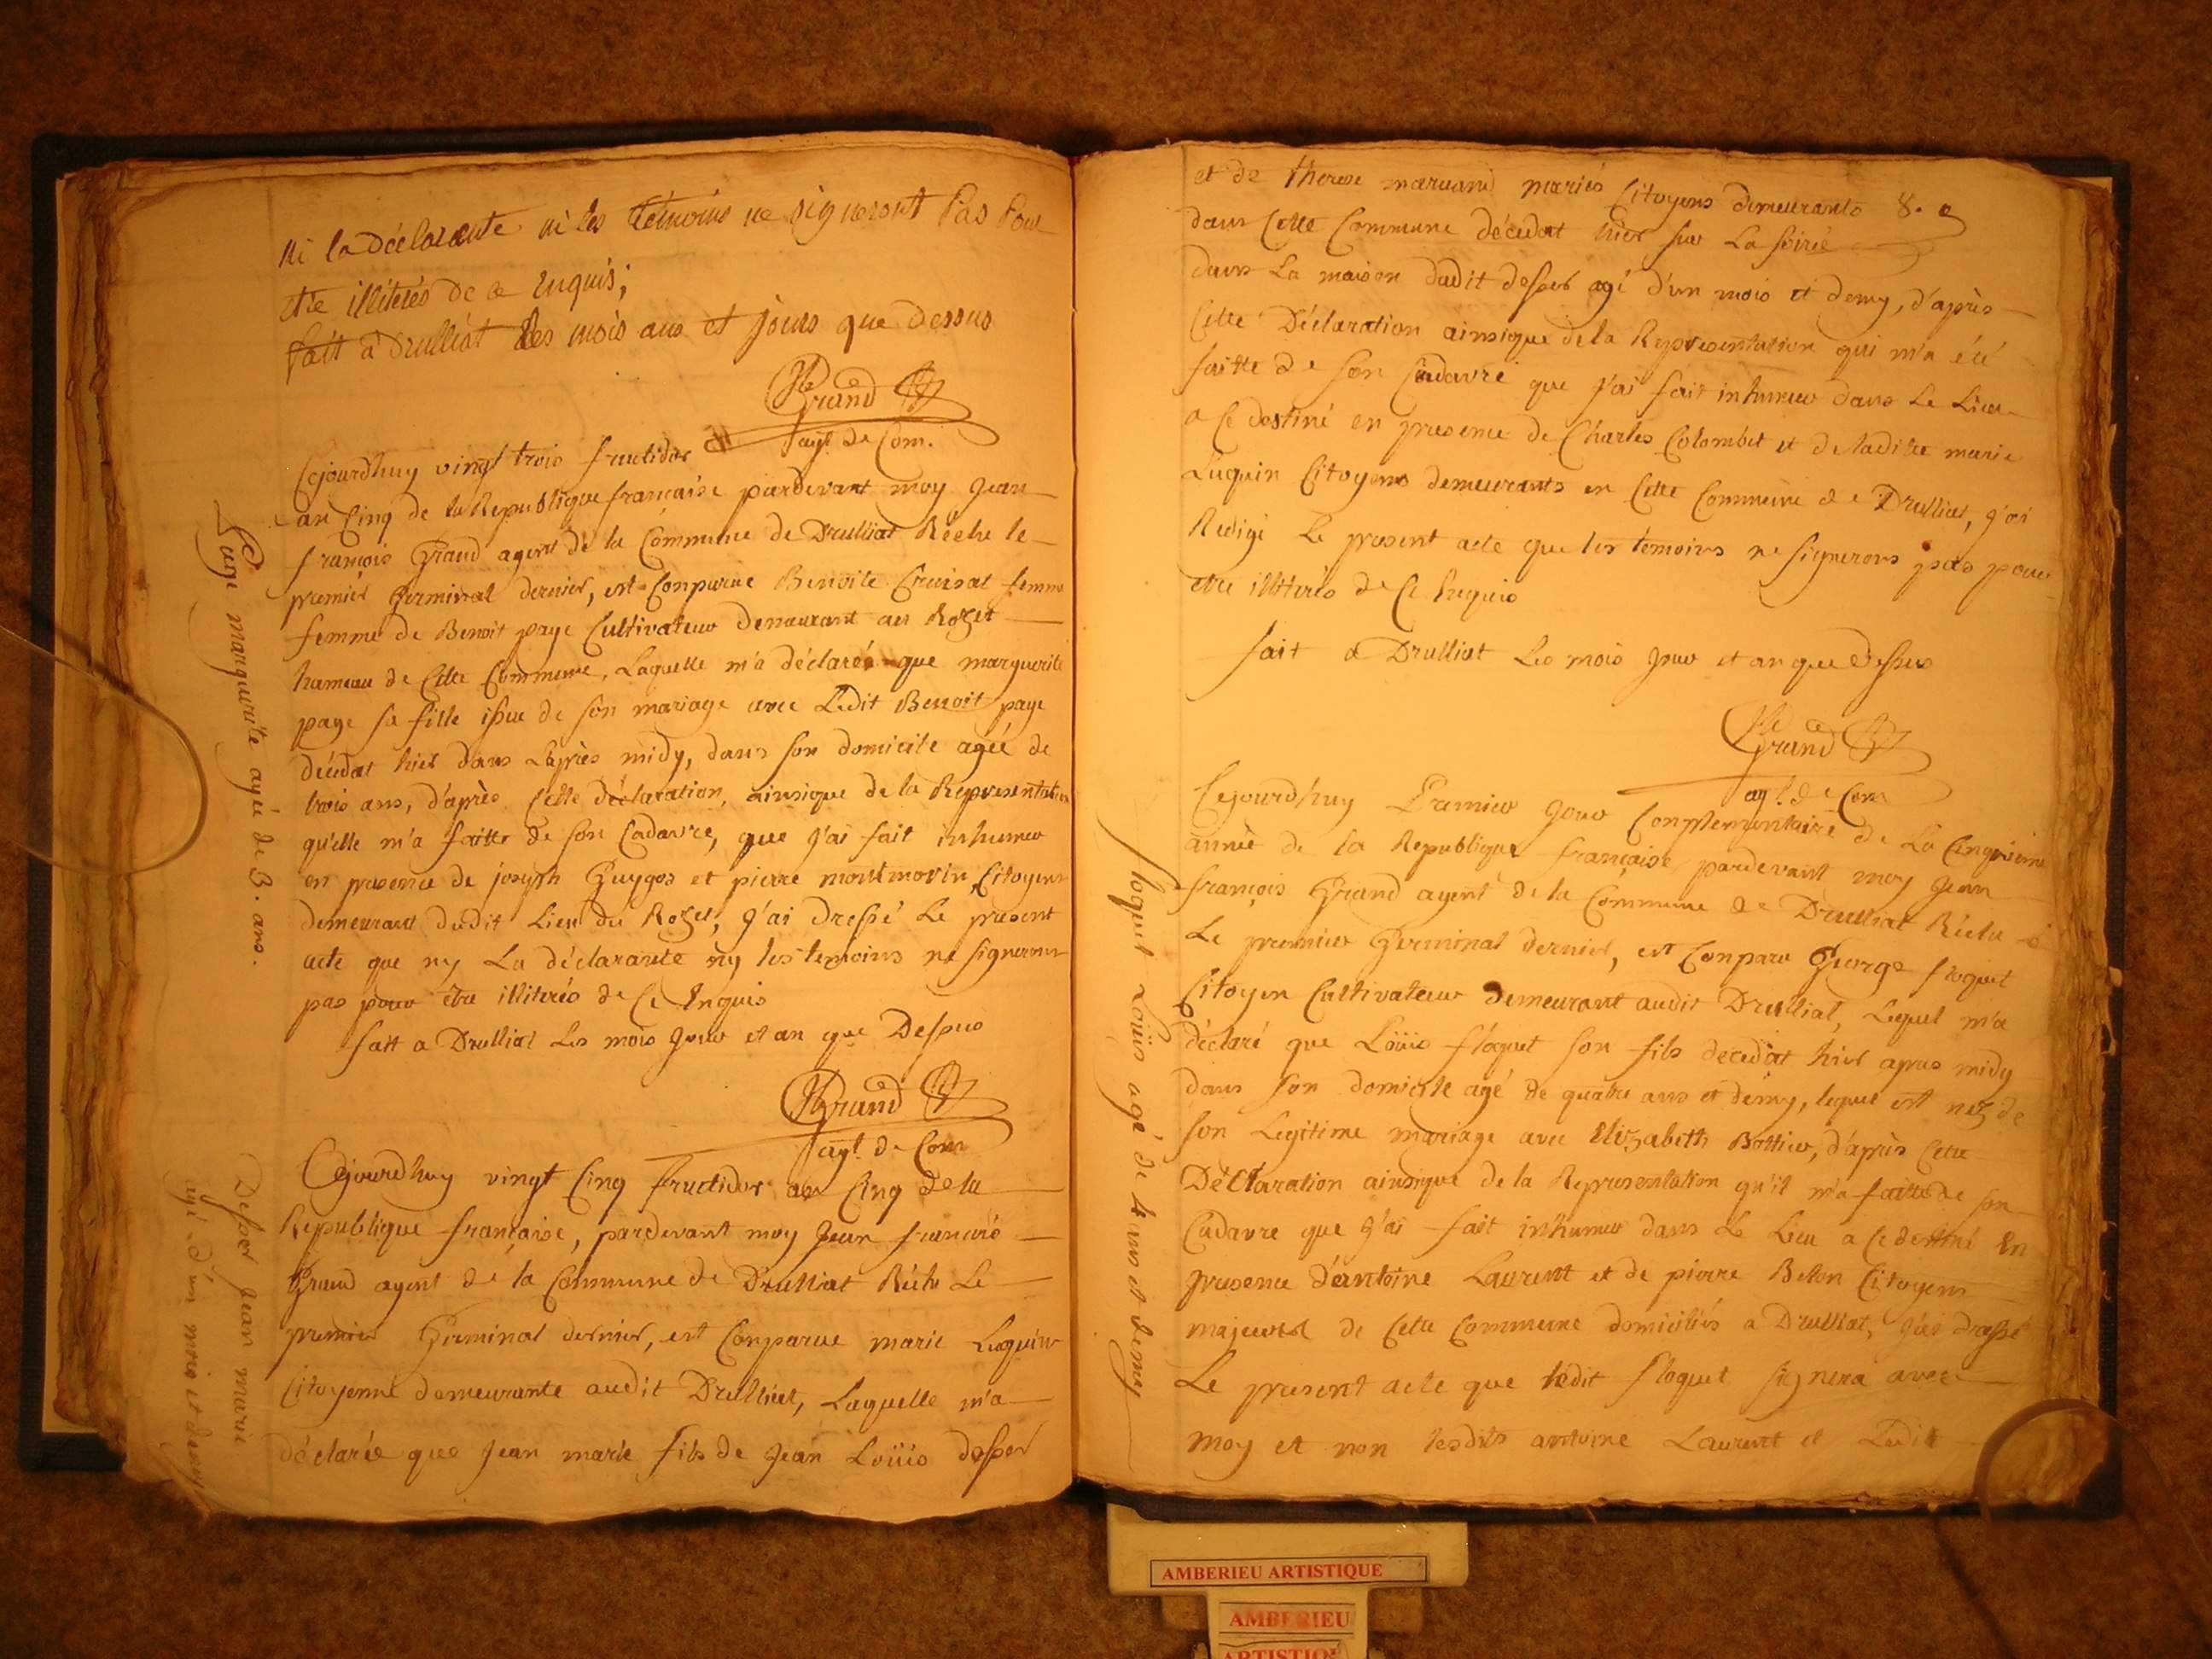 ni la déclarante ni les témoins ne signeront Pas Pour
etre illiterés de ce Enquis;
fait a Drulliat Les mois ans et jours que dessus
Grand
agt. de Com.
Cejourdhuy vingt trois fructidor
an Cinq de la Republique française pardevant moy Jean
françois Grand agent de la Commune de Drulliat Réélu le
premier Germinal dernier, est Conparue Benoite Cruisat femme
femme de Benoit paye Cultivateur demeurant au Rozet
hameau de Cette Commune, Laquelle m'a déclarée que marguerite
paye sa fille issue de son mariage avec Ledit Benoit paye
décédat hier dans Laprès midy, dans son domicile agée de
trois ans, d'après Cette déclaration, ainsique de la Representation
qu'elle m'a faitte de son Cadavre, que j'ai fait inhumer
en presence de joseph Guygos et pierre montmorin Citoyens
demeurant dudit Lieu du Rozet, j'ai Dressé Le present
acte que ny La déclarante ny les temoins ne signerons
pas pour être illiterés de Ce Enquis
fait a Drulliat Les mois Jour et an que Dessus
Grand
agt. de Com
Paye marguerite agée de 3. ans.
Cejourdhuy vingt Cinq fructidor an Cinq de la
Republique française, pardevant moy Jean françois
Grand agent de la Commune de Drulliat Réélu Le
premier Germinal dernier, est Conparue marie Luquin
Citoyenne demeurante audit Drulliat, Laquelle m'a
déclarée que Jean marie fils de Jean Loüis desser
Desser Jean marie
agé d'un mois et demy
8.
et de therese mariés Citoyens demeurants
dans Cette Commune décédat hier sur La soirée
dans La maison dudit desser agé d'un mois et demy, d'après
Cette Déclaration ainsique de la Representation qui m'a été
faitte de son Cadavre que j'ai fait inhumer dans Le Lieu
a Ce destiné en presence de Charles Colombet et de ladite marie
Luquin Citoyens demeurants en Cette Commune de Drulliat, j'ai
Redigé Le present acte que les témoins ne signerons pas pour
etre illiterés de Ce Enquis
fait a Drulliat Les mois Jour et an que dessus
Grand
agt. de Com
Cejourdhuy Premier Jour Conplementaire de La Cinquieme
année de la Republique française pardevant moy Jean
françois Grand agent de la Commune de Drulliat Réélu
Le premier Germinal dernier, est Conparu George floquet
Citoyen Cultivateur demeurant audit Drulliat, Lequel m'a
déclaré que Loüis floquet son fils décédat hier apres midy
dans son domicile agé de quatre ans et demy, lequel est nez de
son Legitime mariage avec Elizabeth Bottier, d'après Cette
Déclaration ainsique de la Representation qu'il m'a faitte de son
Cadavre que j'ai fait inhumer dans Le Lieu a Ce destiné En
presence d'antoine Laurent et de pierre Belon Citoyens
majeurs de Cette Commune domiciliés a Drulliat, j'ai dressé
Le present acte que ledit floquet signera avec
moy et non lesdits antoine Laurent et Ledit
floquet Loüis agé de 4 ans et demy
AMBERIEU ARTISTIQUE
AMBERIEU
ARTISTIQUE